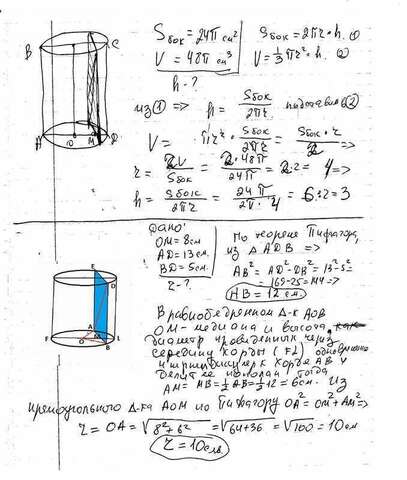 B C
A O M D
Sбок = 24π см²
V = 48π см³
h - ?
Sбок = 2πr·h. ①
V = 1/3 πr²·h. ②
из ① => h = Sбок/2πr подставив ②
V = πr² · Sбок/2πr = Sбок·r/2 =>
r = 2V/Sбок = 2·48π/24π = 2·2 = 4 =>
h = Sбок/2πr = 24π/2π·4 = 6:2=3
Дано:
OM = 8см
AD = 13см.
BD = 5см.
r - ?
По теореме Пифагора,
из △ ADB =>
AB² = AD² - DB² = 13² - 5² =
= 169 - 25 = 144 =>
AB = 12 см.
E
D
F A M O B L
В равнобедренном Δ-к AOB
OM - медиана и высота,
диаметр проведенный через
середину хорды (FL)
перпендикулярен хорде AB и
делит ее пополам тогда
AM = MB = 1/2 AB = 1/2·12 = 6см. Из
прямоугольного Δ-ка AOM по Пифагору OA² = OM² + AM² =>
r = OA = √8² + 6² = √64+36 = √100 = 10см
r = 10см.